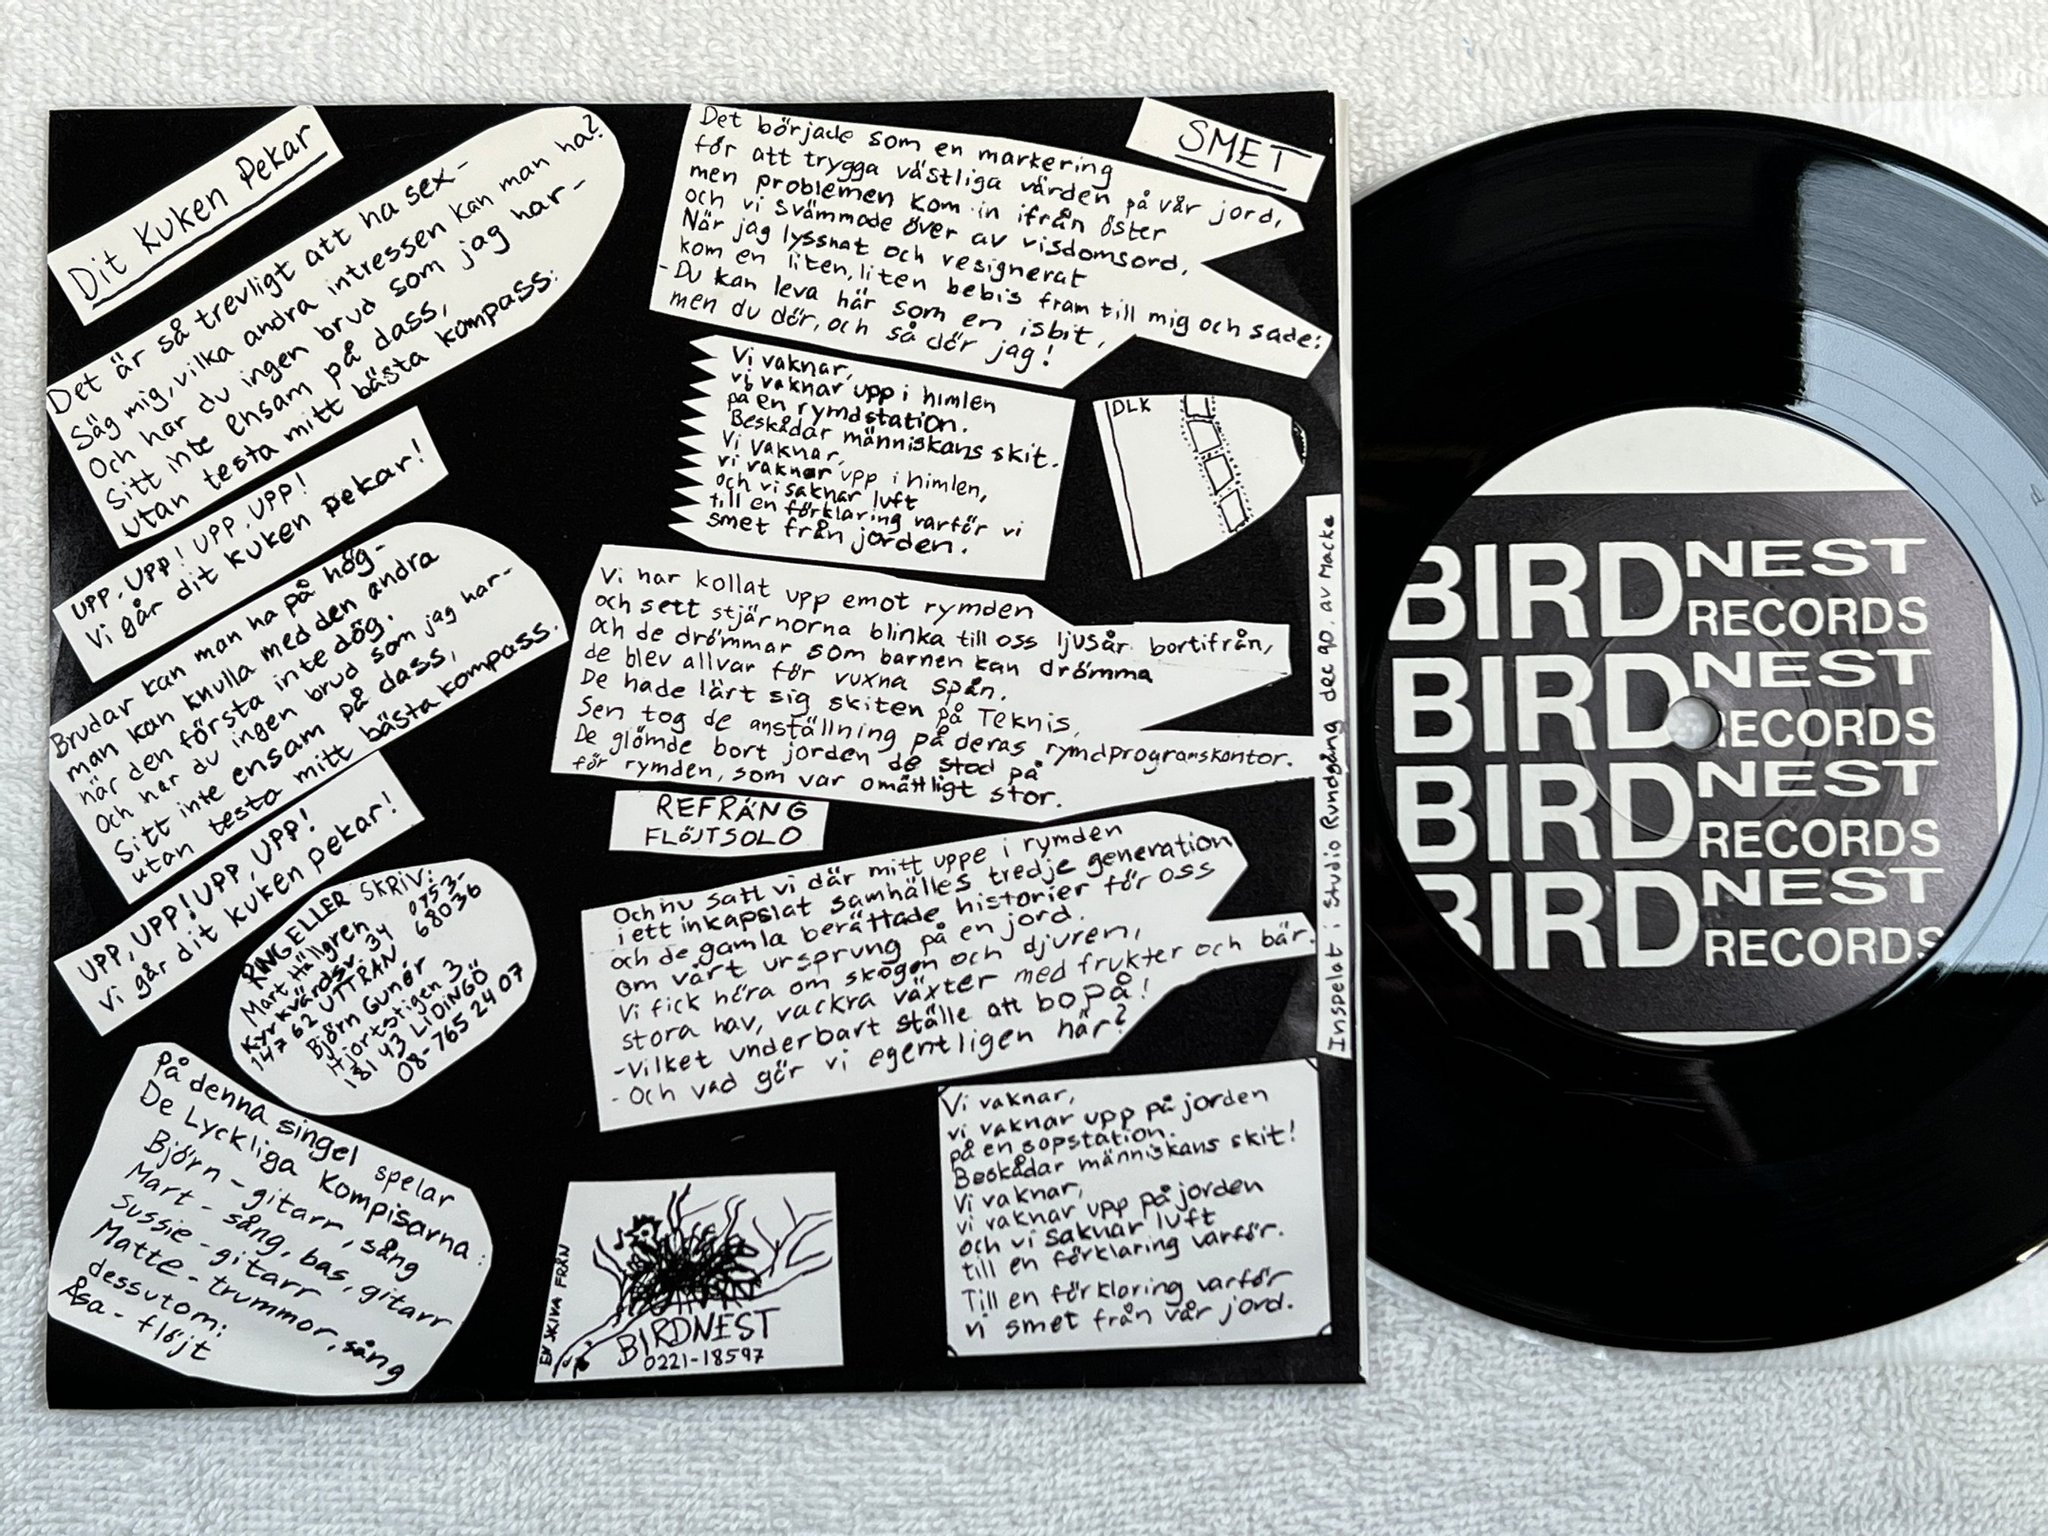 Dit Kuken Pekar
Det är så trevligt att ha sex-
Säg mig, vilka andra intressen kan man ha?
Och har du ingen brud som jag har-
Sitt inte ensam på dass,
utan testa mitt bästa kompass:
UPP, UPP! UPP, UPP!
Vi går dit kuken pekar!
Brudar kan man ha på hög-
man kan knulla med den andra
när den första inte dög.
Och har du ingen brud som jag har-
Sitt inte ensam på dass,
utan testa mitt bästa kompass.
UPP, UPP! UPP, UPP!
Vi går dit kuken pekar!
RING ELLER SKRIV:
Mart Hällgren 0753-
Kyrkvärdsv. 34 68036
147 62 UTTRAN
Björn Gunér
Hjortstigen 3
181 43 LIDINGÖ
08-765 24 07
På denna singel spelar
De Lyckliga Kompisarna:
Björn - gitarr, sång
Mart - sång, bas, gitarr
Sussie - gitarr
Matte - trummor, sång
dessutom:
Åsa - flöjt
SMET
Det började som en markering
för att trygga västliga värden på vår jord,
men problemen kom in ifrån öster
och vi svämmade över av visdomsord.
När jag lyssnat och resignerat
kom en liten, liten bebis fram till mig och sade:
-Du kan leva här som en isbit,
men du dör, och så dör jag!
Vi vaknar,
vi vaknar upp i himlen
på en rymdstation.
Beskådar människans skit.
Vi vaknar,
vi vaknar upp i himlen,
och vi saknar luft
till en förklaring varför vi
smet från jorden.
DLK
Vi har kollat upp emot rymden
och sett stjärnorna blinka till oss ljusår bortifrån,
och de drömmar som barnen kan drömma
de blev allvar för vuxna spån.
De hade lärt sig skiten på Teknis,
Sen tog de anställning på deras rymdprogramskontor.
De glömde bort jorden de stod på
för rymden, som var omåttligt stor.
REFRÄNG
FLÖJTSOLO
Och nu satt vi där mitt uppe i rymden
i ett inkapslat samhälles tredje generation
och de gamla berättade historier för oss
om vårt ursprung på en jord.
Vi fick höra om skogen och djuren,
stora hav, vackra växter med frukter och bär.
-Vilket underbart ställe att bo på!
- Och vad gör vi egentligen här?
Vi vaknar,
vi vaknar upp på jorden
på en sopstation.
Beskådar människans skit!
Vi vaknar,
vi vaknar upp på jorden
och vi saknar luft
till en förklaring varför.
Till en förklaring varför
vi smet från vår jord.
EN SKIVA FRÅN
BIRDNEST
0221-18597
Inspelat i Studio Rundgång dec 90. av Macke
BIRDNEST RECORDS
BIRDNEST RECORDS
BIRDNEST RECORDS
BIRDNEST RECORDS